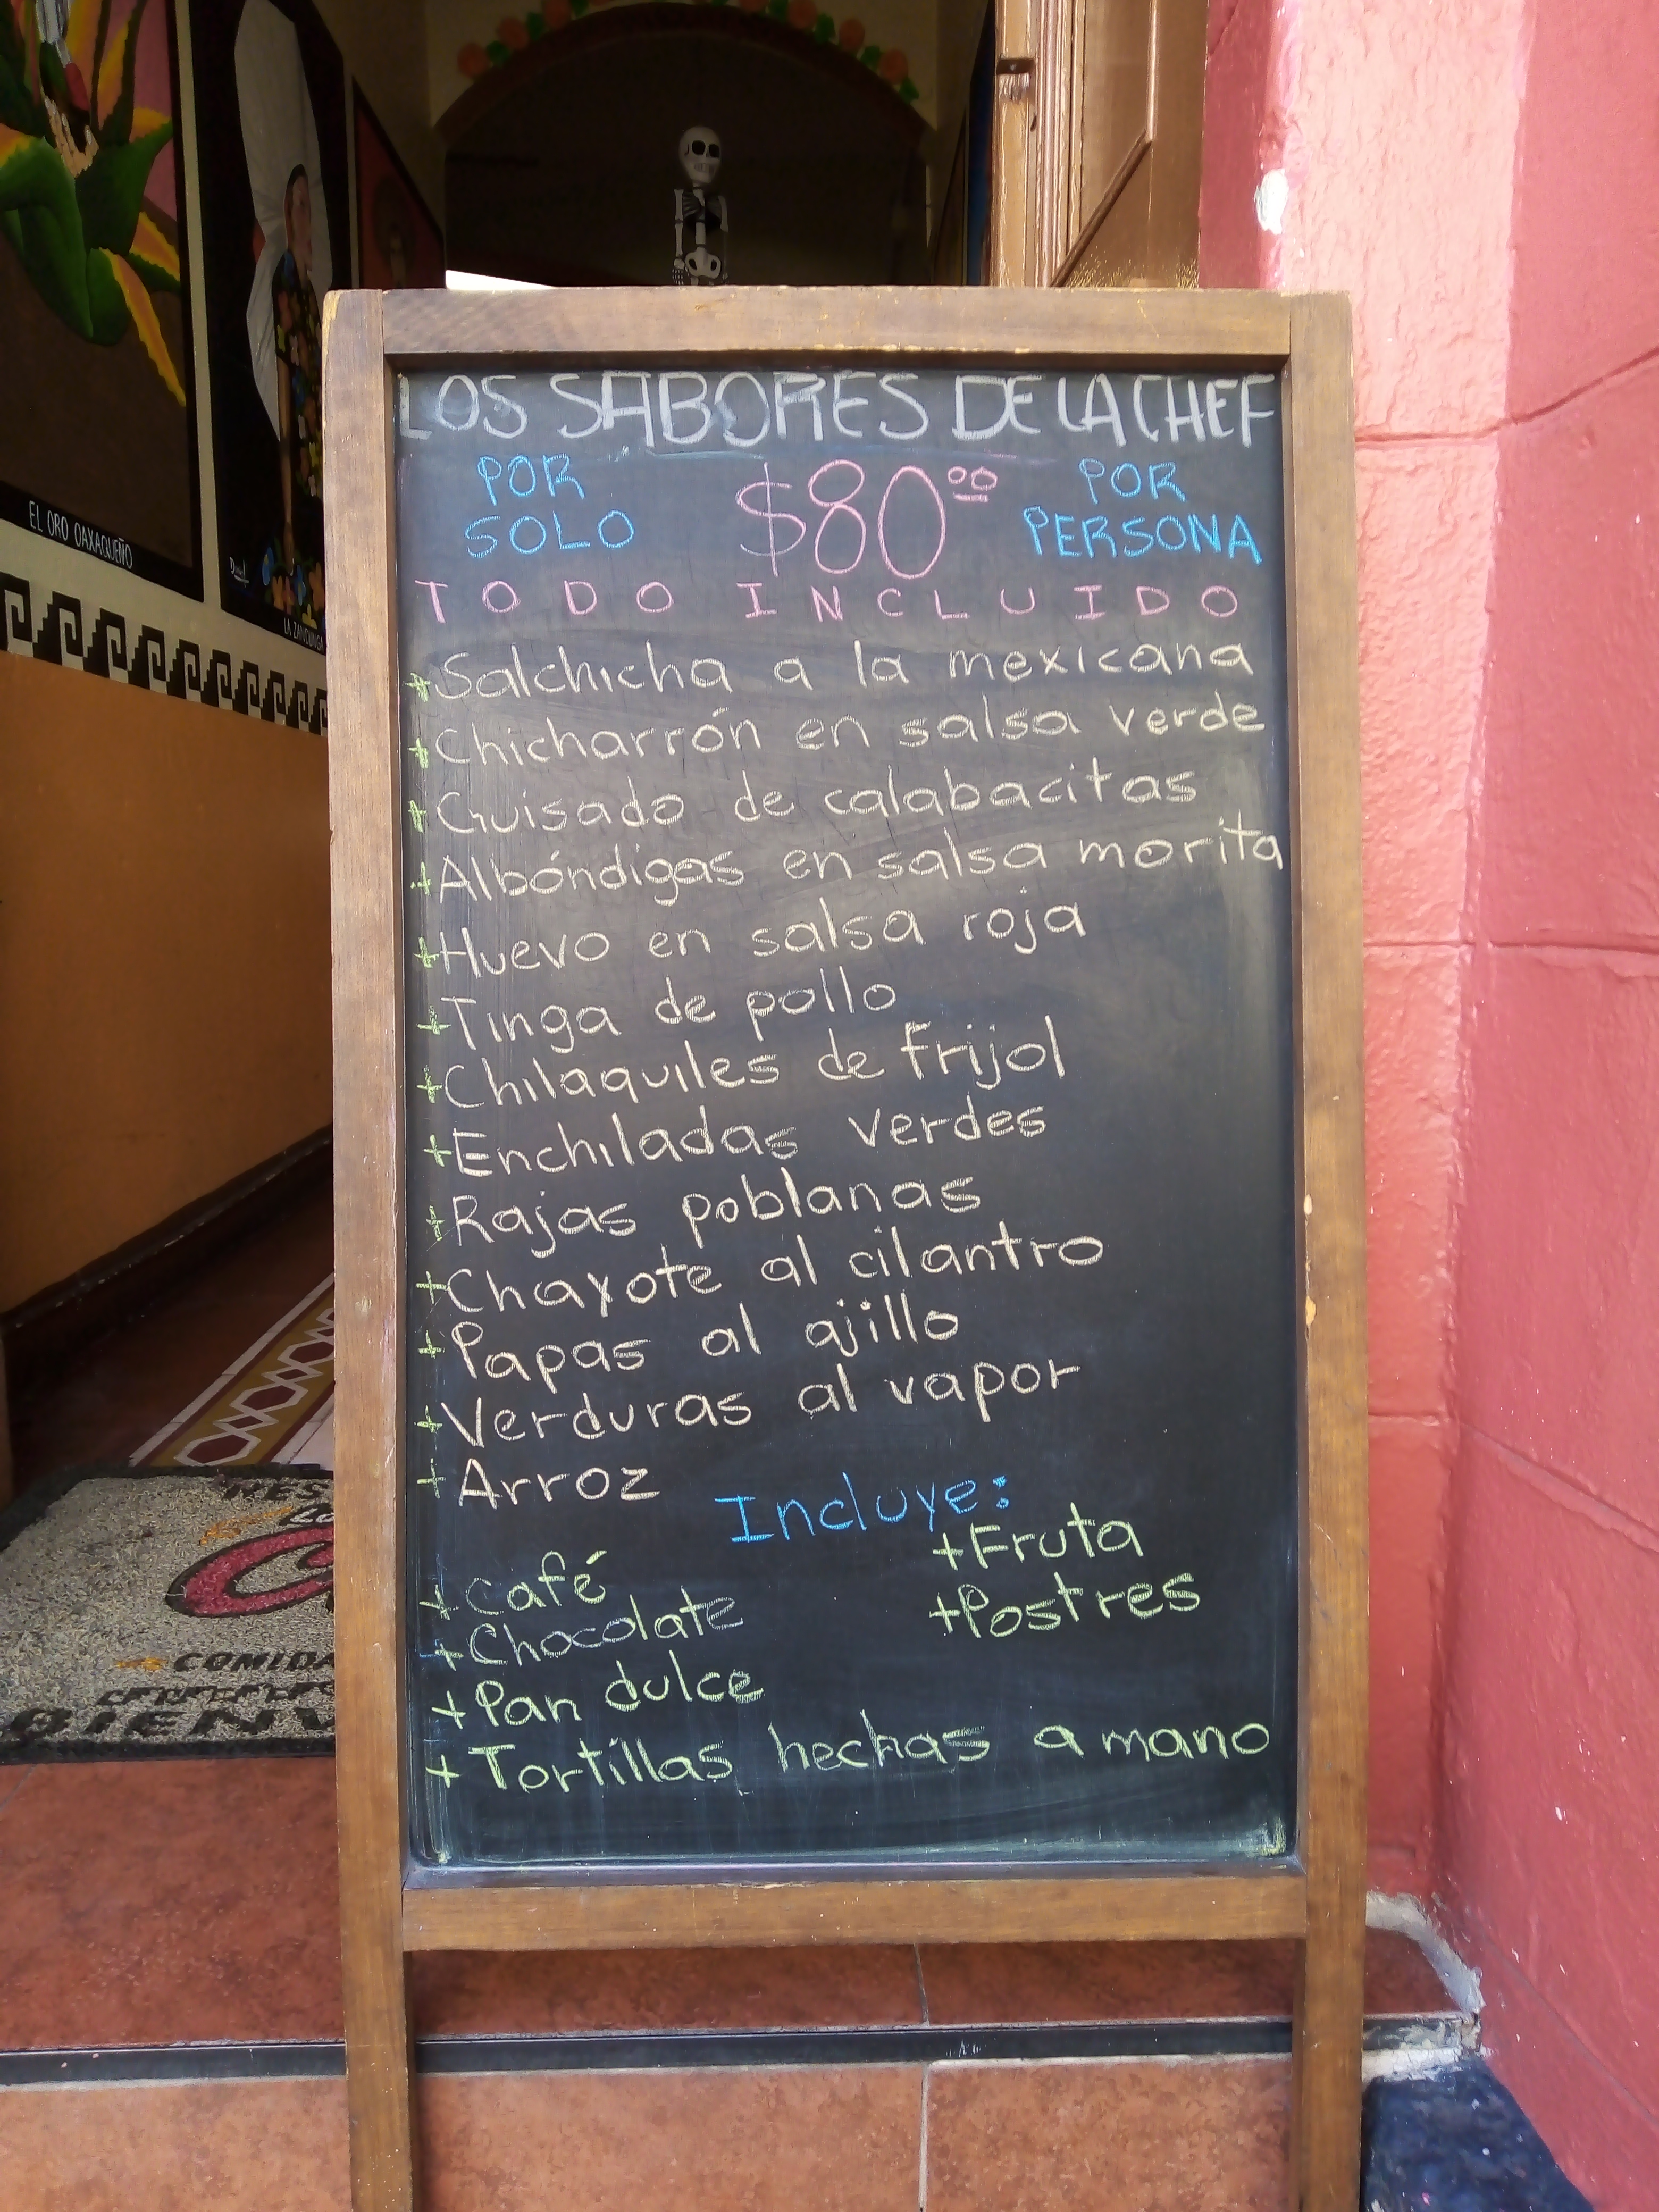 LOS SABORES DE LA CHEF
POR SOLO $80.00 POR PERSONA
TODO INCLUIDO
+Salchicha a la mexicana
+Chicharrón en salsa verde
+Guisado de calabacitas
+Albóndigas en salsa morita
+Huevo en salsa roja
+Tinga de pollo
+Chilaquiles de frijol
+Enchiladas verdes
+Rajas poblanas
+Chayote al cilantro
+Papas al ajillo
+Verduras al vapor
+Arroz
Incluye:
+Café
+Chocolate
+Pan dulce
+Tortillas hechas a mano
+Fruta
+Postres
EL ORO OAXAQUEÑO
LA ZANDUNGA
COMIDA